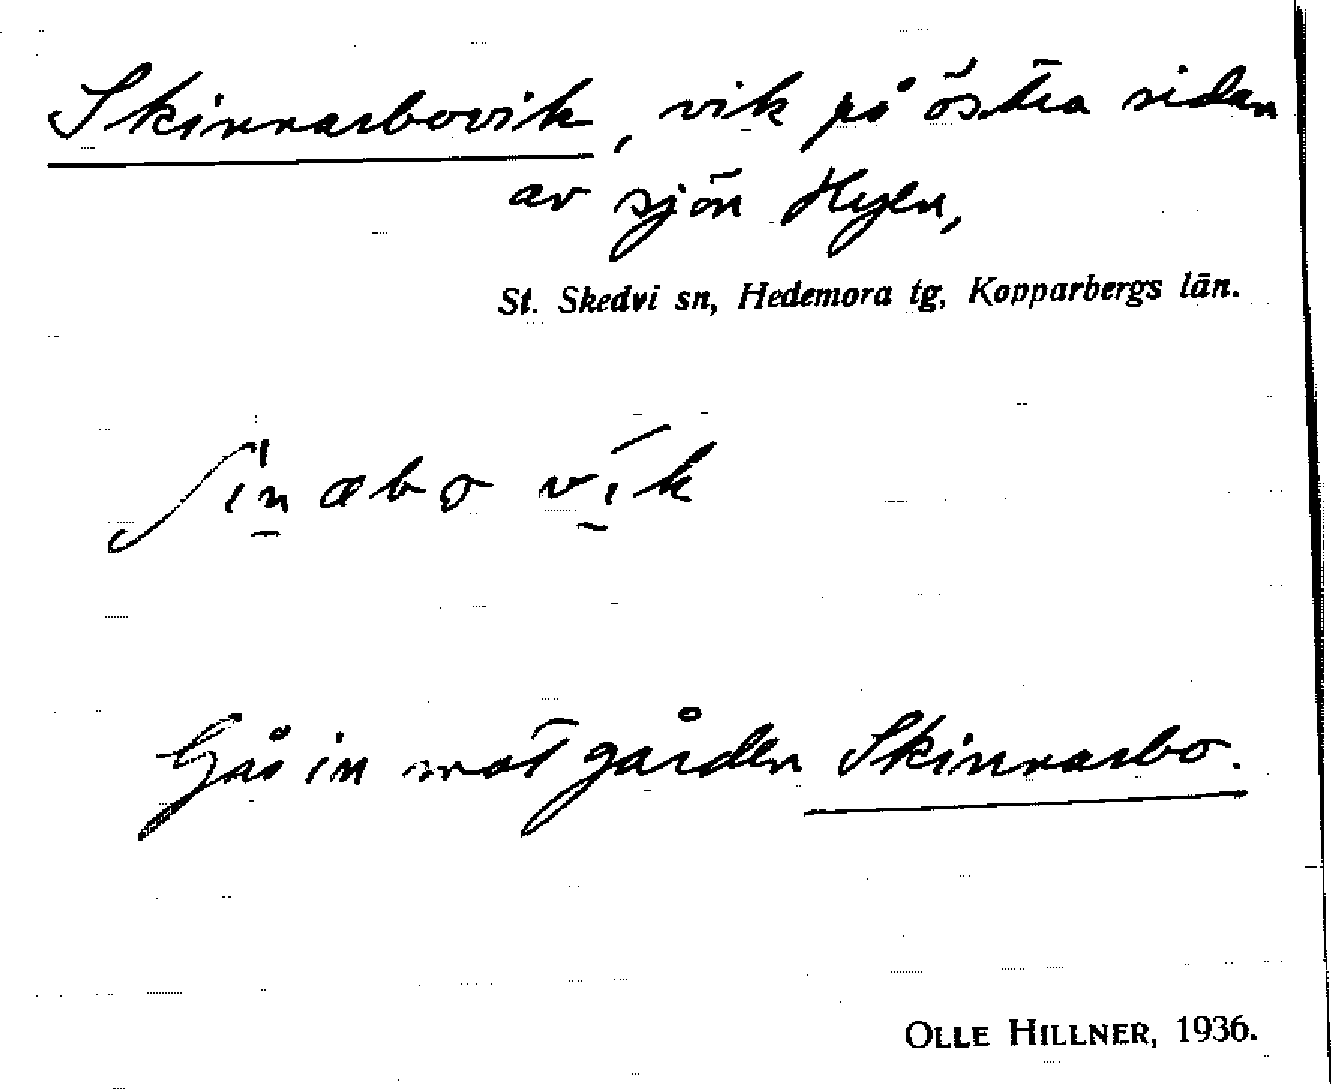 Skinnarbovik, vik på östra sidan
av sjön Hyen,
St. Skedvi sn, Hedemora tg, Kopparbergs län.
ʃinæbo vik
Går in mot gården Skinnarbo.
OLLE HILLNER, 1936.